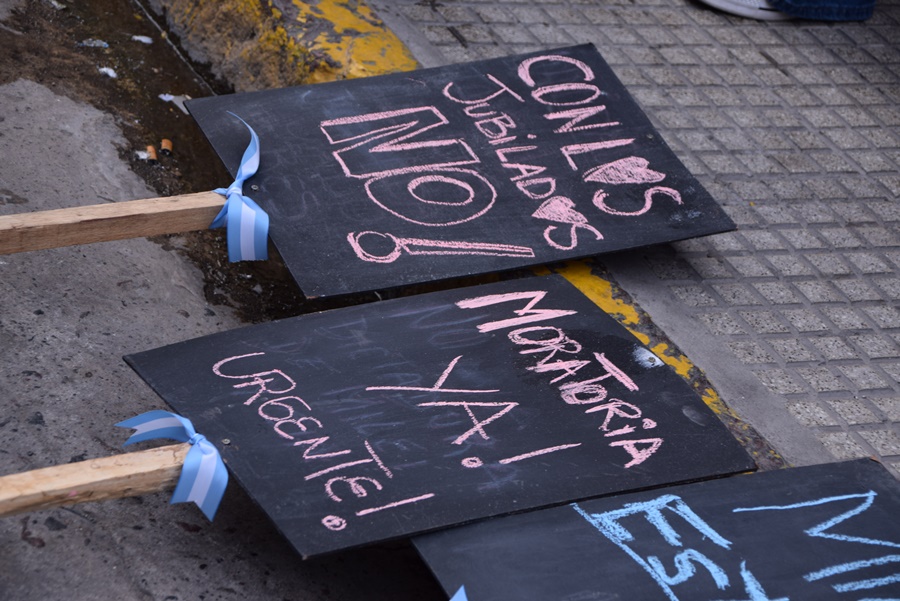 CON L♥S
JUBILAD♥S
NO!
MORATORIA
YA!
URGENTE!